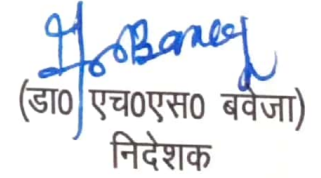 (डा0 एच0एस0 बवेजा)
निदेशक